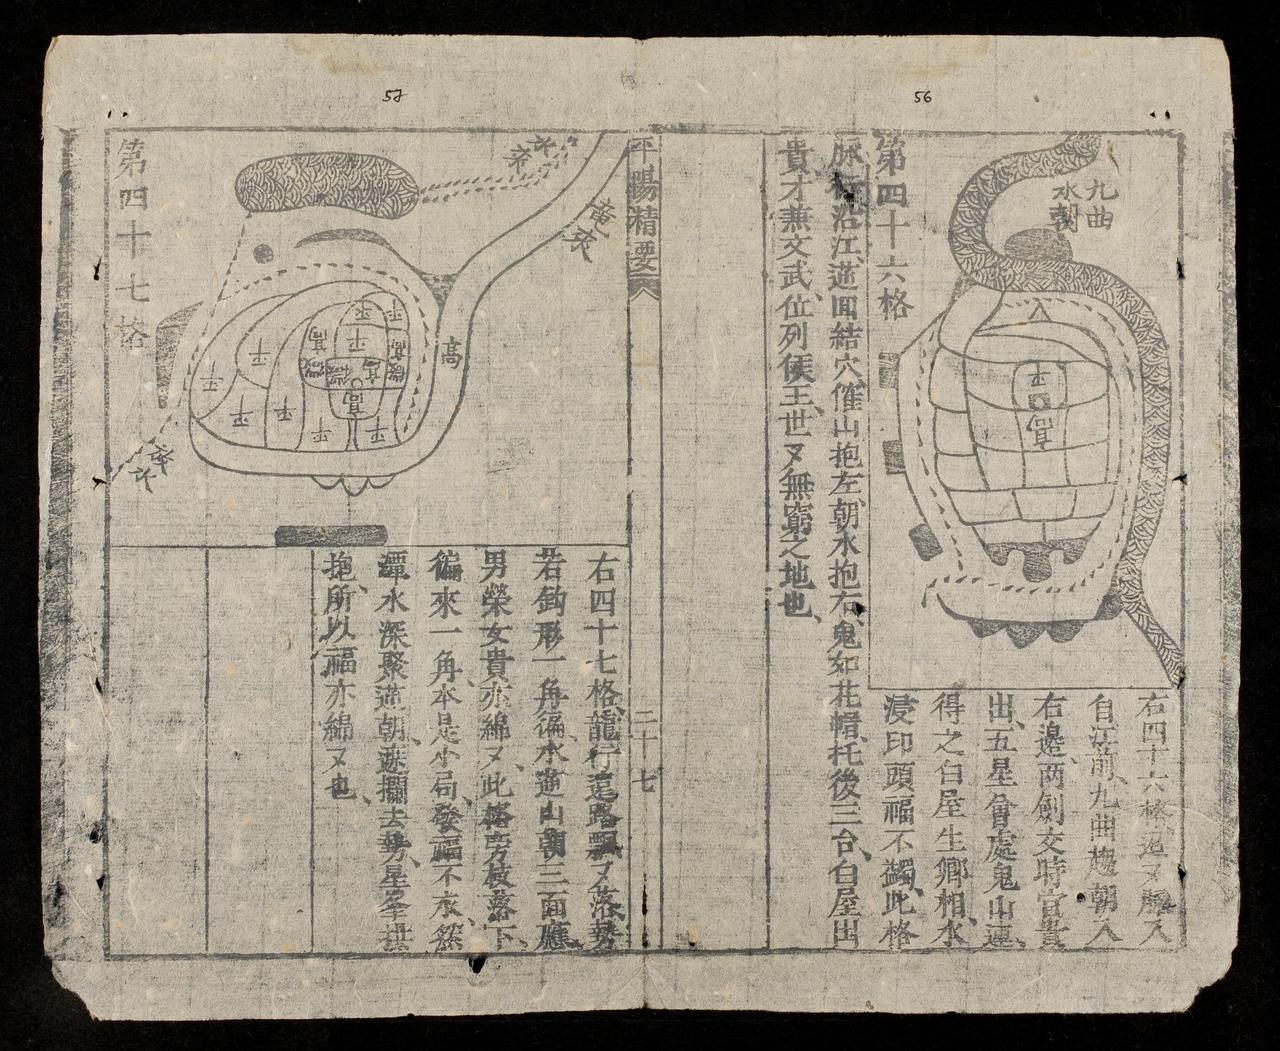 56
第四十六格
九曲
水朝
平
高
右四十六格迢〻脉入
自江前、九曲趨朝入
右邊、两劍交時官貴
出、五星會處鬼山連、
得之白屋生卿相、水
浸印頭福不蠲、此格
脉沿江、逆囬結穴、催山抱左、朝水抱右、鬼如花帽、托後三台、白屋出
貴、才兼文武、位列侯王、世〻無窮之地也、
平陽精要
二十七
57
第四十七格
高
平
平
平
平
平
平
平
平
高
右四十七格、龍行遠路飄〻落、勢
若鈎形一角偏、水逆山朝三面應、
男榮女貴亦綿〻、此格旁枝落下、
徧來一角、本是小局、發福不永、然
潭水深聚逆朝、遮攔去勢、星峯拱
抱、所以福亦綿〻也、